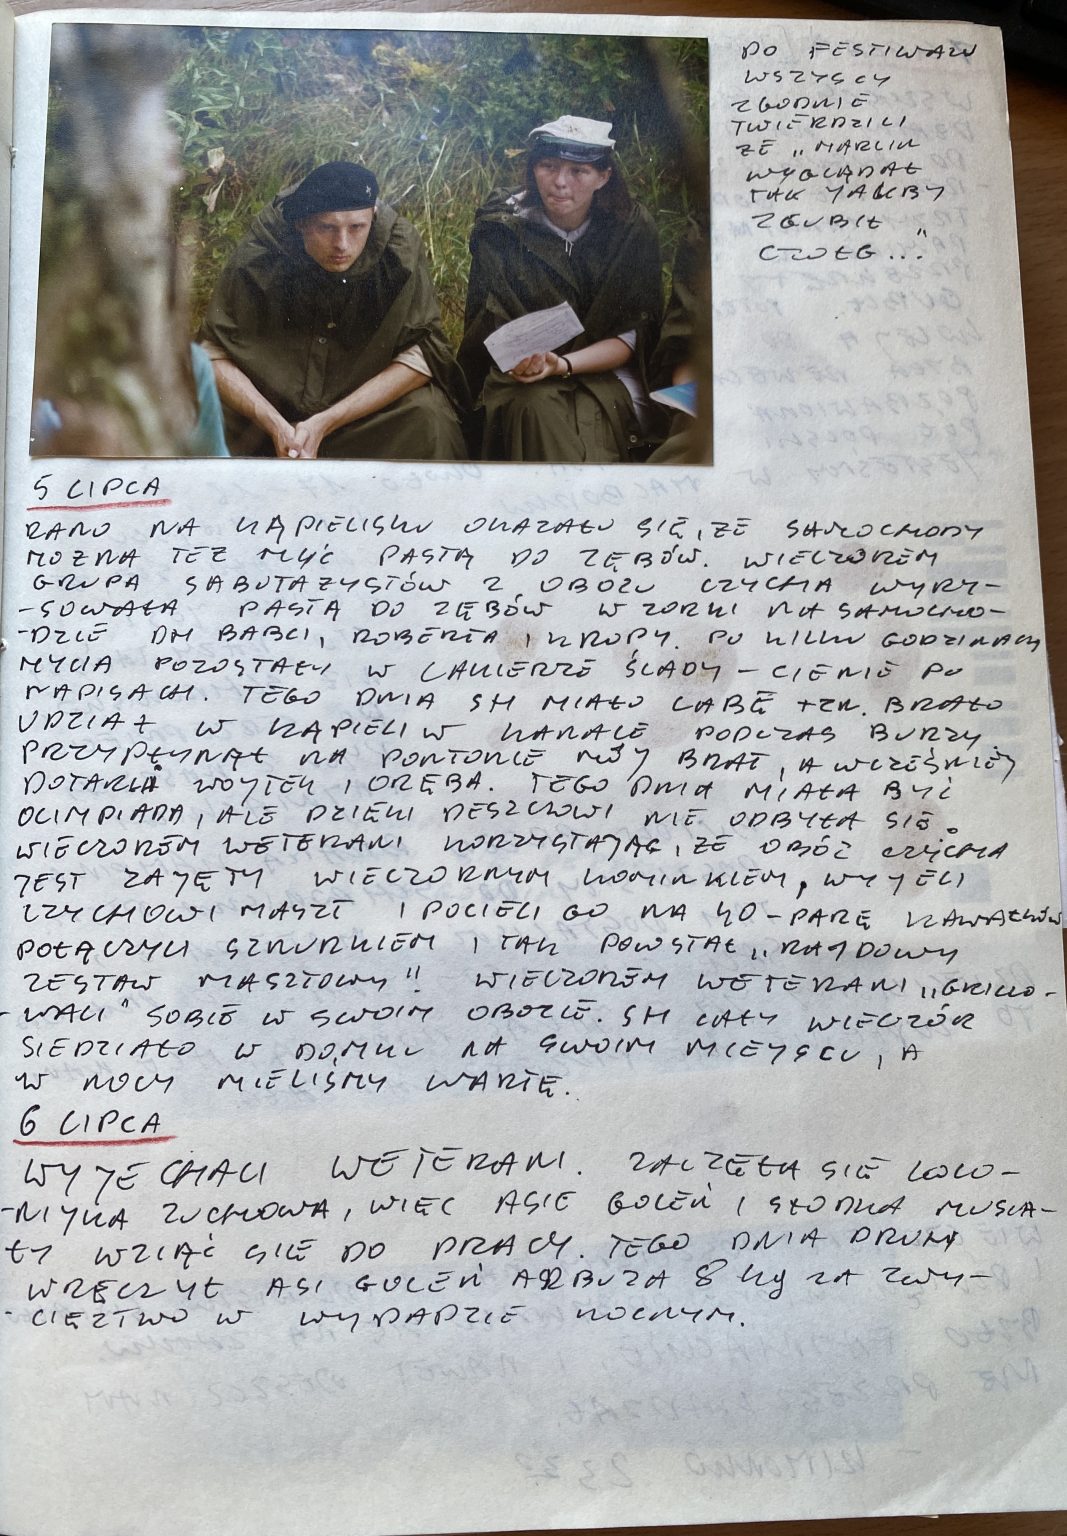 DO FESTIWALU
WSZYSCY
ZGODNIE
TWIERDZILI
ZE „MARCIN
WYGLĄDAŁ
TAK JAKBY
ZGUBIŁ
CZOŁG..."
5 LIPCA
RANO NA KĄPIELISKU OKAZAŁO SIĘ, ZE SAMOCHODY
MOZNA TEZ MYĆ PASTĄ DO ZĘBÓW. WIECZOREM
GRUPA SABOTAZYSTÓW Z OBOZU CZYCHA WYRY-
-SOWAŁA PASTĄ DO ZĘBÓW WZORKI NA SAMOCHO-
-DZIE DH BABCI, ROBERTA I KROPY. PO KILKU GODZINACH
MYCIA POZOSTAŁY W LAKIERZE ŚLADY - CIENIE PO
NAPISACH. TEGO DNIA SH MIAŁO LABĘ TZN. BRAŁO
UDZIAŁ W KĄPIELI W KANALE PODCZAS BURZY
PRZYPŁYNĄŁ NA PONTONIE MÓJ BRAT, A WCZEŚNIEJ
DOTARLI WOJTEK I ORĘBA. TEGO DNIA MIAŁA BYĆ
OLIMPIADA, ALE DZIĘKI DESZCZOWI NIE ODBYŁA SIĘ.
WIECZOREM WETERANI KORZYSTAJĄC, ZE OBÓZ CZYCHA
JEST ZAJĘTY WIECZORNYM KOMINKIEM, WYJĘLI
CZYCHOWI MASZT I POCIELI GO NA 40-PARĘ KAWAŁKÓW
POŁĄCZYLI SZNURKIEM I TAK POWSTAŁ „RAJDOWY
ZESTAW MASZTOWY"! WIECZOREM WETERANI „GRILLO-
-WALI" SOBIE W SWOIM OBOZIE. SH CAŁY WIECZÓR
SIEDZIAŁO W DOMKU NA SWOIM MIEJSCU, A
W NOCY MIELIŚMY WARTĘ.
6 LIPCA
WYJECHALI WETERANI. ZACZĘŁA SIĘ KOLO-
-NIJKA ZUCHOWA, WIĘC ASIE GOLEŃ I SŁODKA MUSIA-
ŁY WZIĄĆ SIĘ DO PRACY. TEGO DNIA DRUH
WRĘCZYŁ ASI GOLEŃ ARBUZA 8 kg ZA ZWY-
-CIĘZTWO W WYPADZIE NOCNYM.